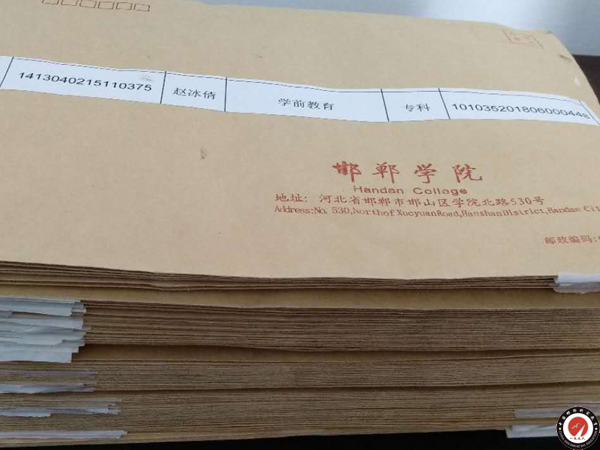 1413040215110375 赵冰倩 学前教育 专科 101035201806000448
邯郸学院
Handan College
地址: 河北省邯郸市邯山区学院北路530号
Address:No 530,North of Xueyuan Road,Hanshan District,Handan City
邮政编码: